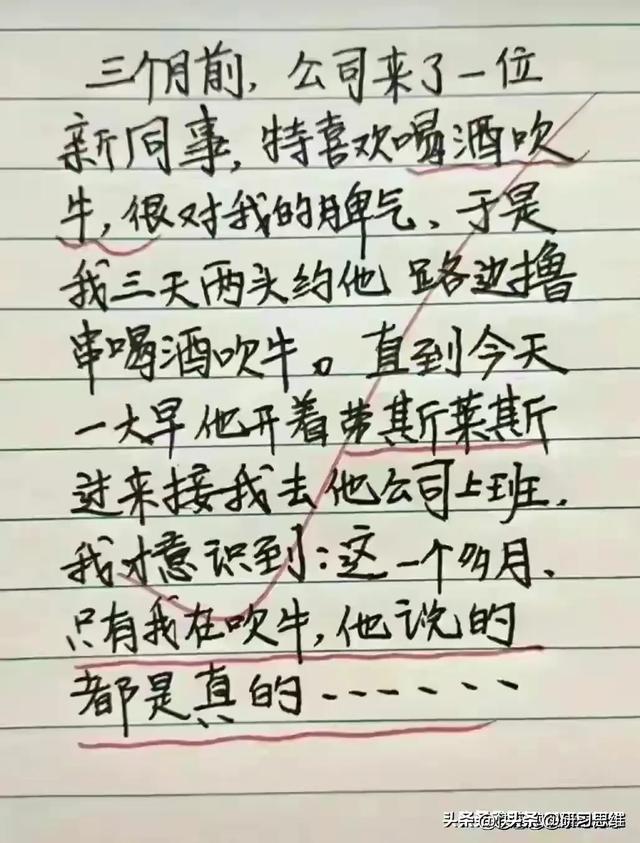 三个月前，公司来了一位
新同事，特喜欢喝酒吹
牛，很对我的脾气、于是
我三天两头约他路边撸
串喝酒吹牛。直到今天
一大早他开着劳斯莱斯
过来接我去他公司上班．
我才意识到：这一个多月、
只有我在吹牛，他说的
都是真的······
头条@研习思维